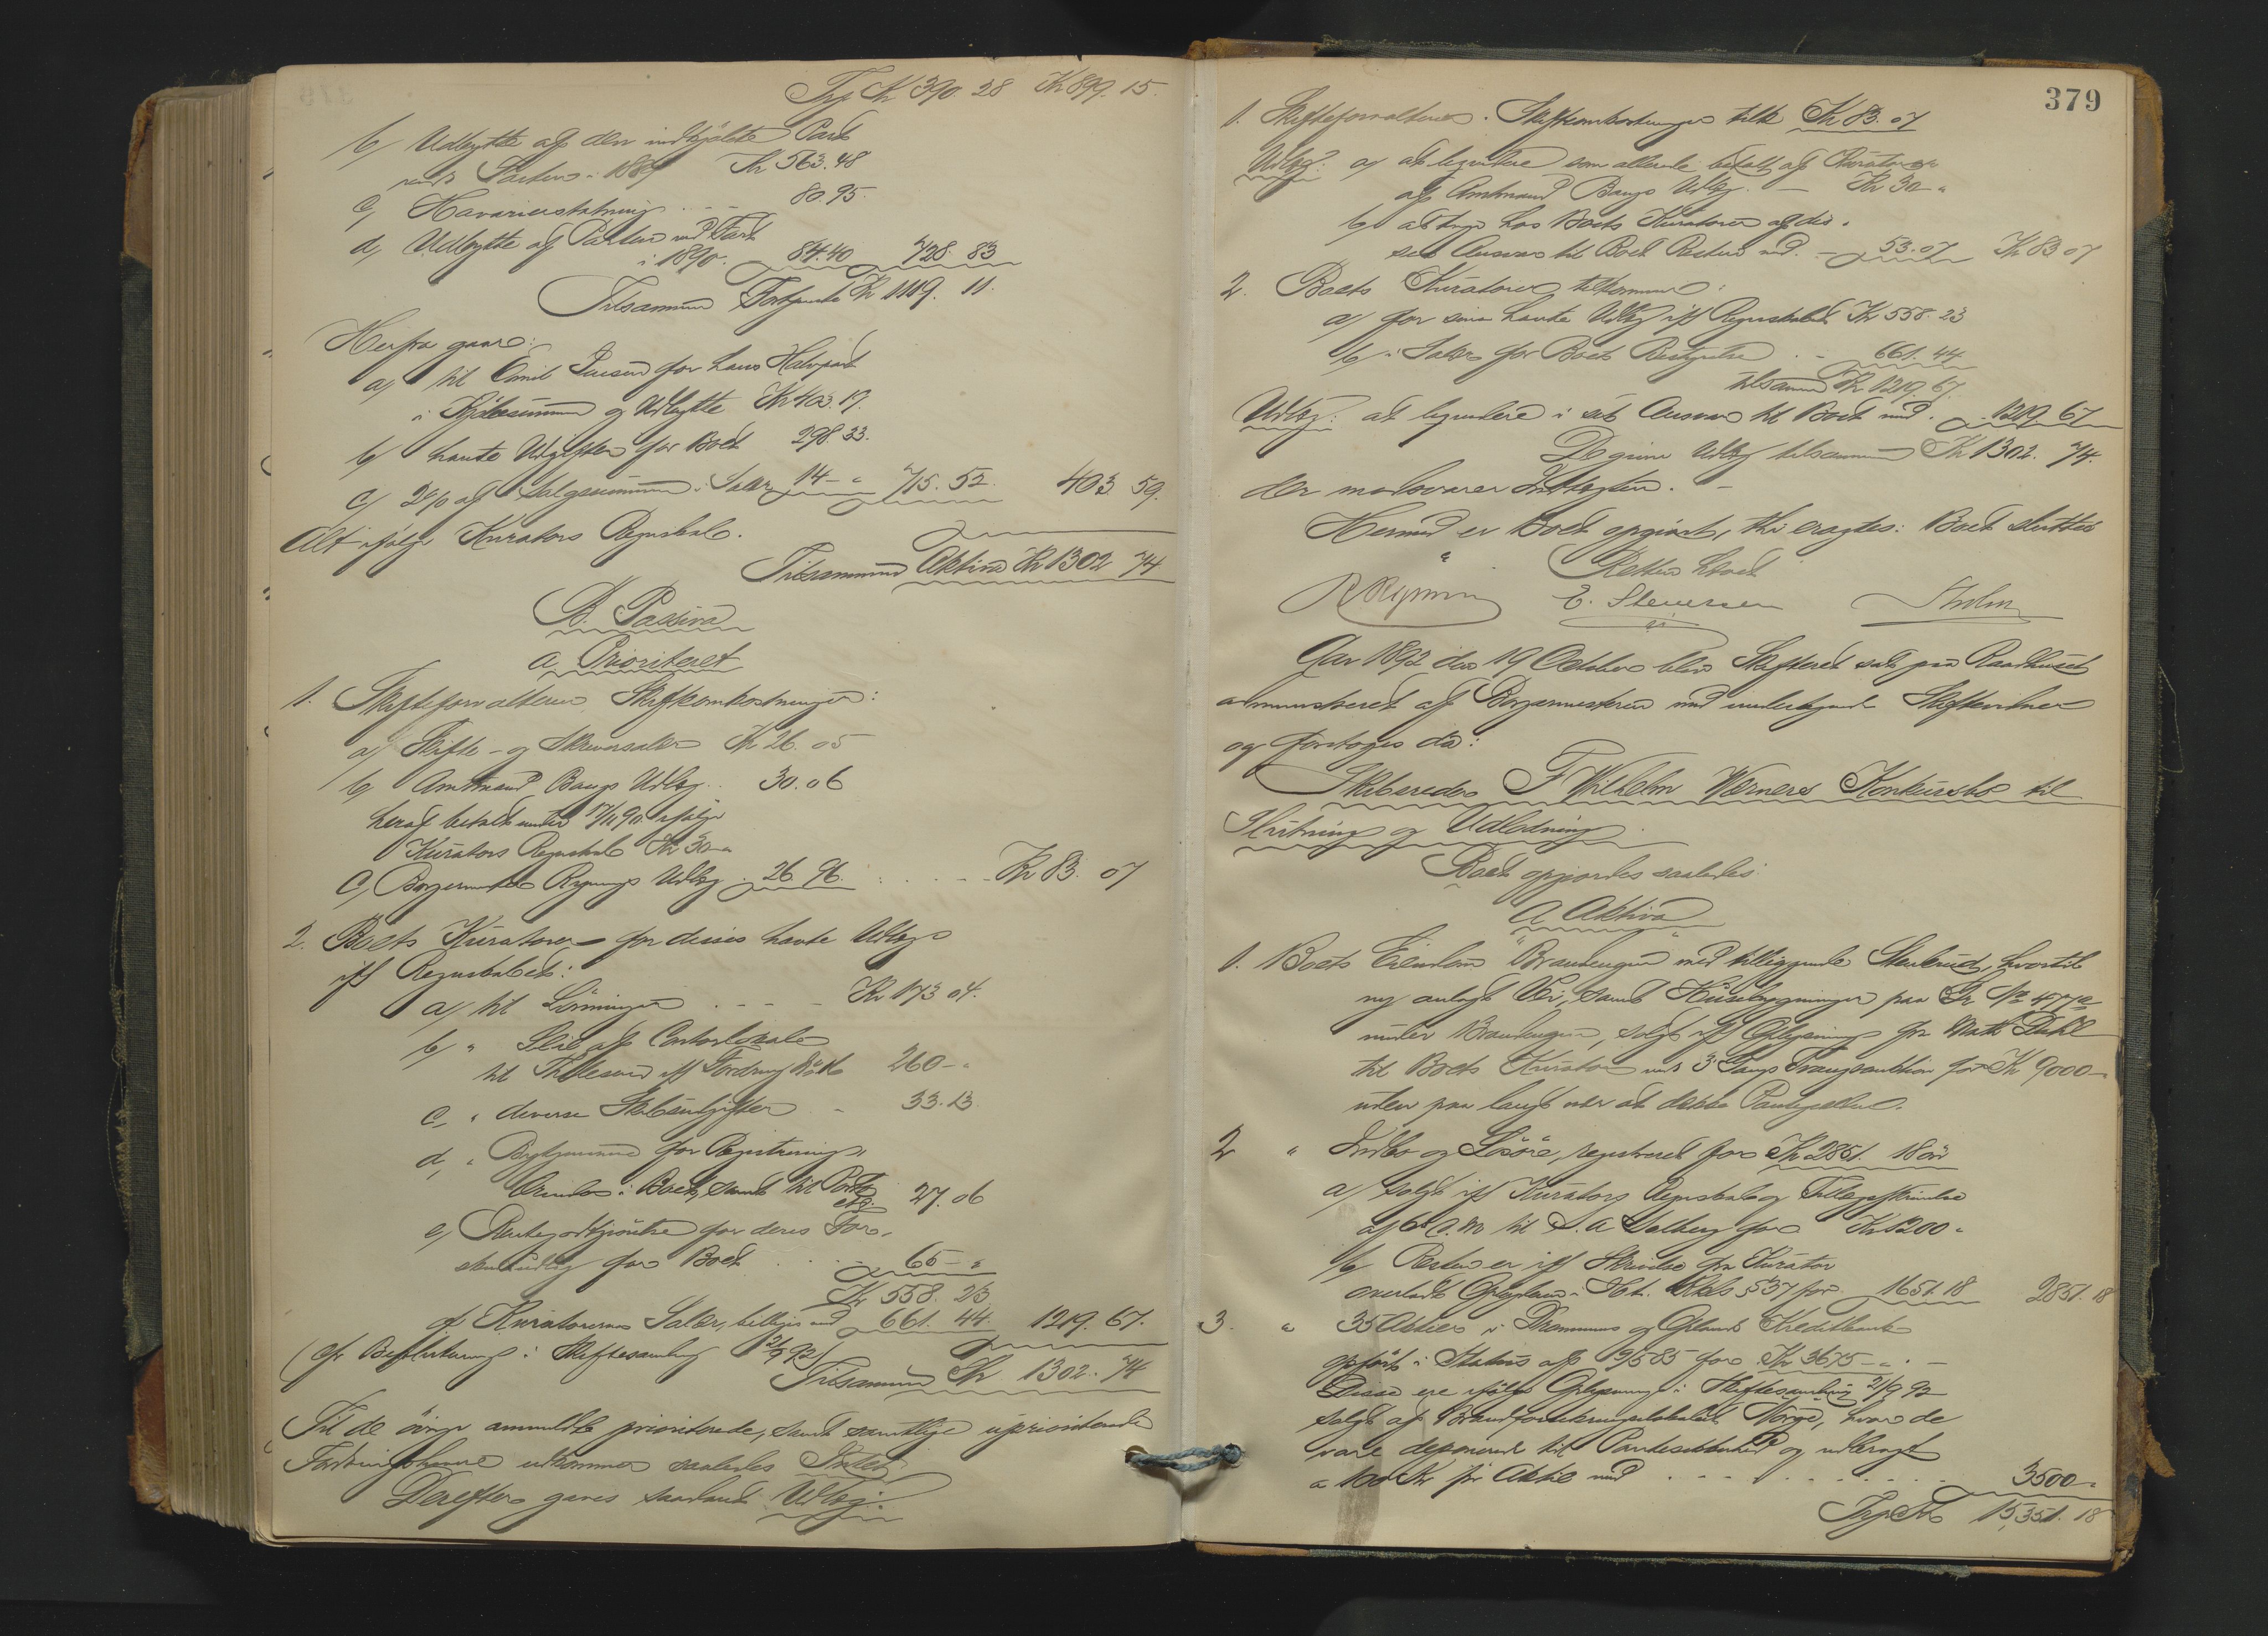 Trp Kr 390. 28 Kr 899. 15.
b/ Udbytte af den indkjøbte Part
under Farten i 1889 Kr 563. 48
c/ Havarierstatning . . . 80. 95.
d, Udbytte af Parten ved Fart
i 1890. 84. 40 728. 83
Tilsammen Kr 1119. 11.
Herfra gaar:
a/ til Emil Iversen for hans Halvpart
i Kjøbesummen og Udbytte Kr 403. 19.
b/ havte Udgifter for Boet 298. 33.
c/ 2% af Salgssummen i Salær 14 - " 715. 52. 403 59.
Alt ifølge Kurators Regnskab.
Tilsammen Aktiva Kr 1302 74
B. Passiva
a, Prioriteret
1. Skifteforvalteren Skifteomkostninger:
a/ Skifte- og Skriversalær Kr 26. 05
b, Amtmand Bangs Udlæg . . 30. 06
heraf betalt under 7/11 90 ifølge
Kurators Regnskab Kr 30 - "
c, Borgermester Rynnings Udlæg . 26. 96. . . . . Kr 83. 07
2. Boets Kuratorer for disses havte Udlæg
iflg Regnskabet:
a/ til Lønninger . . . . Kr 173 04.
b/ " Leie af Contorlokale
til Tillesen iflg Fordring 260 - "
c, " diverse Skibsudgifter - 33. 13.
d, " for Registrering,
i Boet, samt til Porto
etc. 27. 06
e, Rentegodtgjørelse for deres For-
skudsudlæg for Boet . . . 65 - "
Kr 558. 23
f Kuratorernes Salær, billiges med 661. 44. 1219. 67.
(cfr Beslutning i Skiftesamling 21/9 92)
Tilsammen Kr 1302. 74
Til de øvrige anmeldte prioriterede, samt samtlige uprioriterede
Fordringshavere udkommer saaledes Intet.
Derefter gaves saadant Udlæg:
379
1. Skifteforvalteren i Skifteomkostninger tilk. Kr 83. 07
Udlæg: a/ at liqvidere som allerede betalt af Kurator
af Amtmand Bangs Udlæg. - Kr 30 - "
b/ at tage hos Boets Kuratorer af dis-
ses Ansvar til Boet Resten med. - 53. 07 Kr 83 07
2. Boets Kuratorer tilkommer:
a/ for sine havte Udlæg iflg Regnskabet Kr 558. 23
b/ i Salær for Boets Bestyrelse . - 661. 44
tilsammen Kr 1219. 67.
Udlæg: at liqvidere i sit Ansvar til Boet med . 1219. 67
De givne Udlæg tilsammen Kr 1302. 74.
der modsvarer Indtægten. -
Hermed er Boet opgjort, thi eragtes: Boet sluttes
Retten hævet
R Rynning E. Steversen Holm
Aar 1892 den 19 Oktober blev Skifteret sat paa Raadhuset
administreret af Borgermesteren med undertegnede Skiftevidner
og foretoges da:
Skibsreder F Wilhelm Werners Konkursbo til
Slutning og Udlodning
Boet opgjordes saaledes
A Aktiva
1. Boets Eiendom "Brandengen" med tilliggende Stenbrud, hvortil
ny anlagt Vei, samt Husebygninger paa Gr No 477a
under Brandengen, solgt iflg Oplysning fra
til Boets Kurator ved 3 Gangs Tvangsauktion for Kr 9000 -
uden paa langt nær at dække Pantegjælden.
2 " Indbo og Løsøre, registreret for Kr 2851. 18 øre
a/ solgt iflg Kurators Regnskab og Tillægsskrivelse
af 6 d. M. til S. A Solberg for Kr 1200 -
b/ Resten er iflg Skrivelse fra Kurator
overladt i Hht. Kkl § 37 for 1651. 18 2851. 18
3. " 35 Aktier i Drammens og Oplands Kreditbank
opført i Status af 19/5 85 for Kr 3675 - " . -
Disse ere ifølge Oplysning i Skiftesamling 21/9 92
solgt af Brandforsikringsselskabet Norge, hvor de
vare deponerede til Pantesikkerhed og udbragt
a 100 Kr pr Aktie med . . . . . . . . 3500 -
Trp Kr 15,351. 18